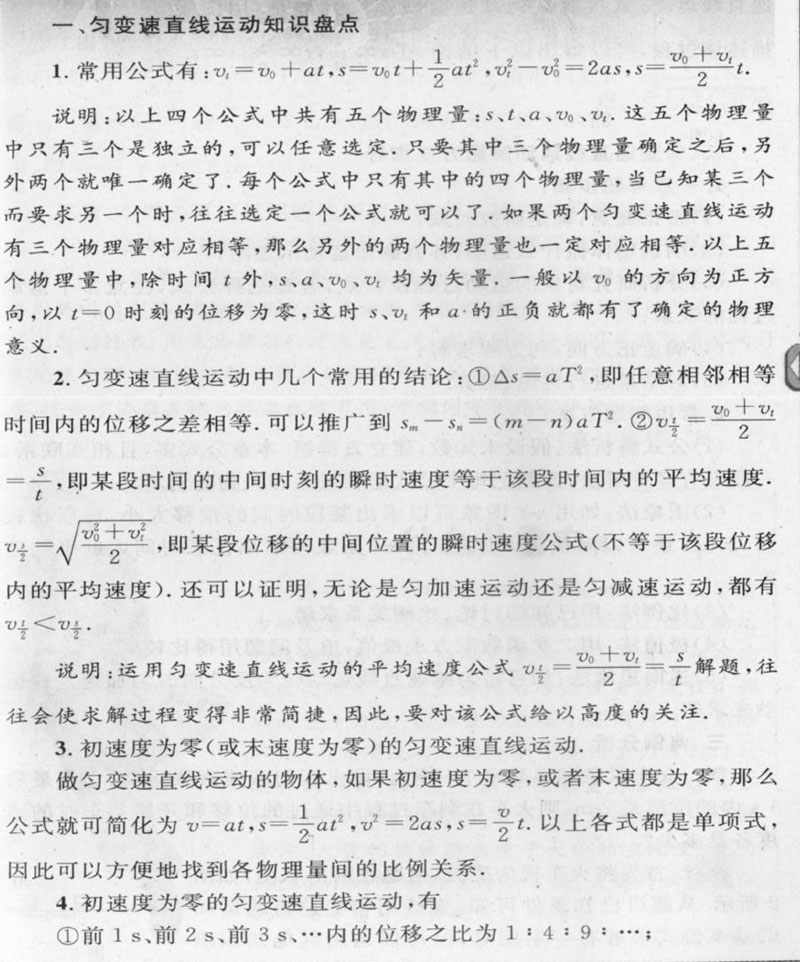 一、匀变速直线运动知识盘点
1. 常用公式有:vₜ=v₀+at,s=v₀t+\frac{1}{2}at²,vₜ²-v₀²=2as,s=\frac{v₀+vₜ}{2}t.
说明:以上四个公式中共有五个物理量:s、t、a、v₀、vₜ. 这五个物理量
中只有三个是独立的,可以任意选定. 只要其中三个物理量确定之后,另
外两个就唯一确定了. 每个公式中只有其中的四个物理量,当已知某三个
而要求另一个时,往往选定一个公式就可以了. 如果两个匀变速直线运动
有三个物理量对应相等,那么另外的两个物理量也一定对应相等. 以上五
个物理量中,除时间 t 外,s、a、v₀、vₜ 均为矢量. 一般以 v₀ 的方向为正方
向,以 t=0 时刻的位移为零,这时 s、vₜ 和 a 的正负就都有了确定的物理
意义.
2. 匀变速直线运动中几个常用的结论:①△s=aT²,即任意相邻相等
时间内的位移之差相等. 可以推广到 sₘ-sₙ=(m-n)aT². ②v_{\frac{t}{2}}=\frac{v₀+vₜ}{2}
=\frac{s}{t},即某段时间的中间时刻的瞬时速度等于该段时间内的平均速度.
v_{\frac{s}{2}}=\sqrt{\frac{v₀²+vₜ²}{2}},即某段位移的中间位置的瞬时速度公式(不等于该段位移
内的平均速度). 还可以证明,无论是匀加速运动还是匀减速运动,都有
v_{\frac{t}{2}}<v_{\frac{s}{2}}.
说明:运用匀变速直线运动的平均速度公式 v_{\frac{t}{2}}=\frac{v₀+vₜ}{2}=\frac{s}{t}解题,往
往会使求解过程变得非常简捷,因此,要对该公式给以高度的关注.
3. 初速度为零(或末速度为零)的匀变速直线运动.
做匀变速直线运动的物体,如果初速度为零,或者末速度为零,那么
公式就可简化为 v=at,s=\frac{1}{2}at²,v²=2as,s=\frac{v}{2}t. 以上各式都是单项式,
因此可以方便地找到各物理量间的比例关系.
4. 初速度为零的匀变速直线运动,有
①前 1 s、前 2 s、前 3 s、…内的位移之比为 1∶4∶9∶…;